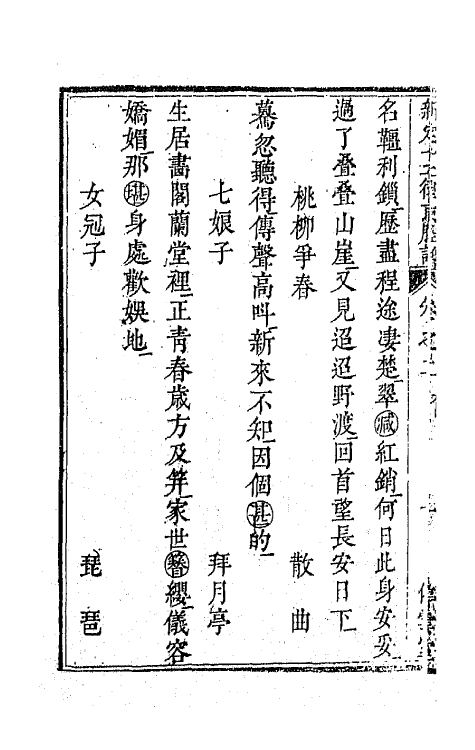 名韁利鎖歷盡程途淒楚翠減紅銷何日此身安妥
過了叠叠山崖又見迢迢野渡回首望長安日下
桃柳爭春 散曲
驀忽聽得傳聲高叫新來不知因個甚的
七娘子 拜月亭
生居畵閣蘭堂裡正青春歲方及笄家世簪纓儀容
嬌媚那堪身處歡娛地
女冠子 琵琶